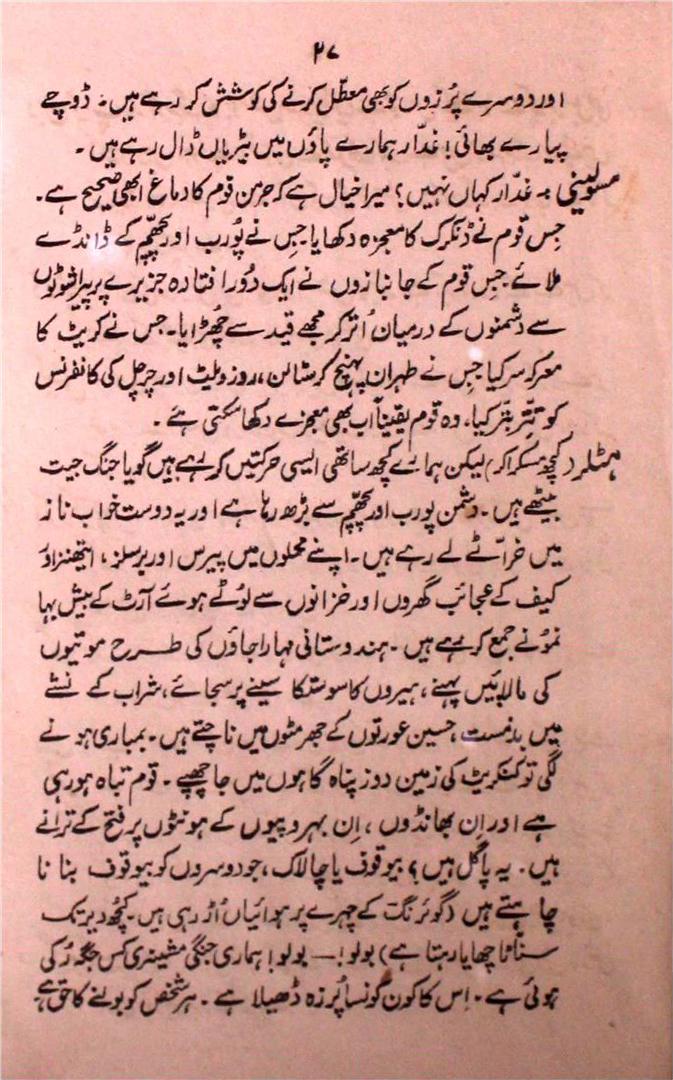 ۲۷
اور دوسرے پُرزوں کو بھی معطّل کرنے کی کوشش کر رہے ہیں۔ ڈوچے
پیارے بھائی! غدّار ہمارے پاؤں میں بیڑیاں ڈال رہے ہیں۔
مسولینی :۔ غدّار کہاں نہیں؟ میرا خیال ہے کہ جرمن قوم کا دماغ ابھی صحیح ہے۔
جس قوم نے ڈنکرک کا معجزہ دکھایا۔ جس نے پُورب اور پچھّم کے ڈانڈے
ملائے جس قوم کے جانبازوں نے ایک دُور افتادہ جزیرے پر پیراشوٹوں
سے دشمنوں کے درمیان اُتر کر مجھے قید سے چُھڑایا۔ جس نے کریٹ کا
معرکہ سر کیا جس نے طہران پہنچ کر سٹالن، روزویلٹ اور چرچل کی کانفرنس
کو تتّر بتّر کیا۔ وہ قوم یقیناً اب بھی معجزے دکھا سکتی ہے۔
ہٹلر (کچھ مسکرا کر) لیکن ہمارے کچھ ساتھی ایسی حرکتیں کر رہے ہیں گویا جنگ جیت
بیٹھے ہیں۔ دشمن پورب اور پچھّم سے بڑھ رہا ہے اور یہ دوست خواب ناز
میں خرّاٹے لے رہے ہیں۔ اپنے محلوں میں پیرس اور برسلز، ایتھنز اور
کیف کے عجائب گھروں اور خزانوں سے لُوٹے ہوئے آرٹ کے بیش بہا
نمونے جمع کر رہے ہیں۔ ہندوستانی مہاراجاؤں کی طرح موتیوں
کی مالائیں پہنے، ہیروں کا سوستکا سینے پر سجائے، شراب کے نشے
میں بدمست، حسین عورتوں کے جھرمٹوں میں ناچتے ہیں۔ بمباری ہونے
لگی تو کنکریٹ کی زمین دوز پناہ گاہوں میں جا چھپے۔ قوم تباہ ہو رہی
ہے اور اِن بھانڈوں، اِن بہروپیوں کے ہونٹوں پر فتح کے ترانے
ہیں۔ یہ پاگل ہیں؟ بیوقوف یا چالاک، جو دوسروں کو بیوقوف بنانا
چاہتے ہیں (گوئرنگ کے چہرے پر ہوائیاں اُڑ رہی ہیں۔ کچھ دیر تک
سنّاٹا چھایا رہتا ہے) بولو! — بولو! ہماری جنگی مشینری کس جگہ رُکی
ہوئی ہے۔ اِس کا کون کونسا پُرزہ ڈھیلا ہے۔ ہر شخص کو بولنے کا حق ہے